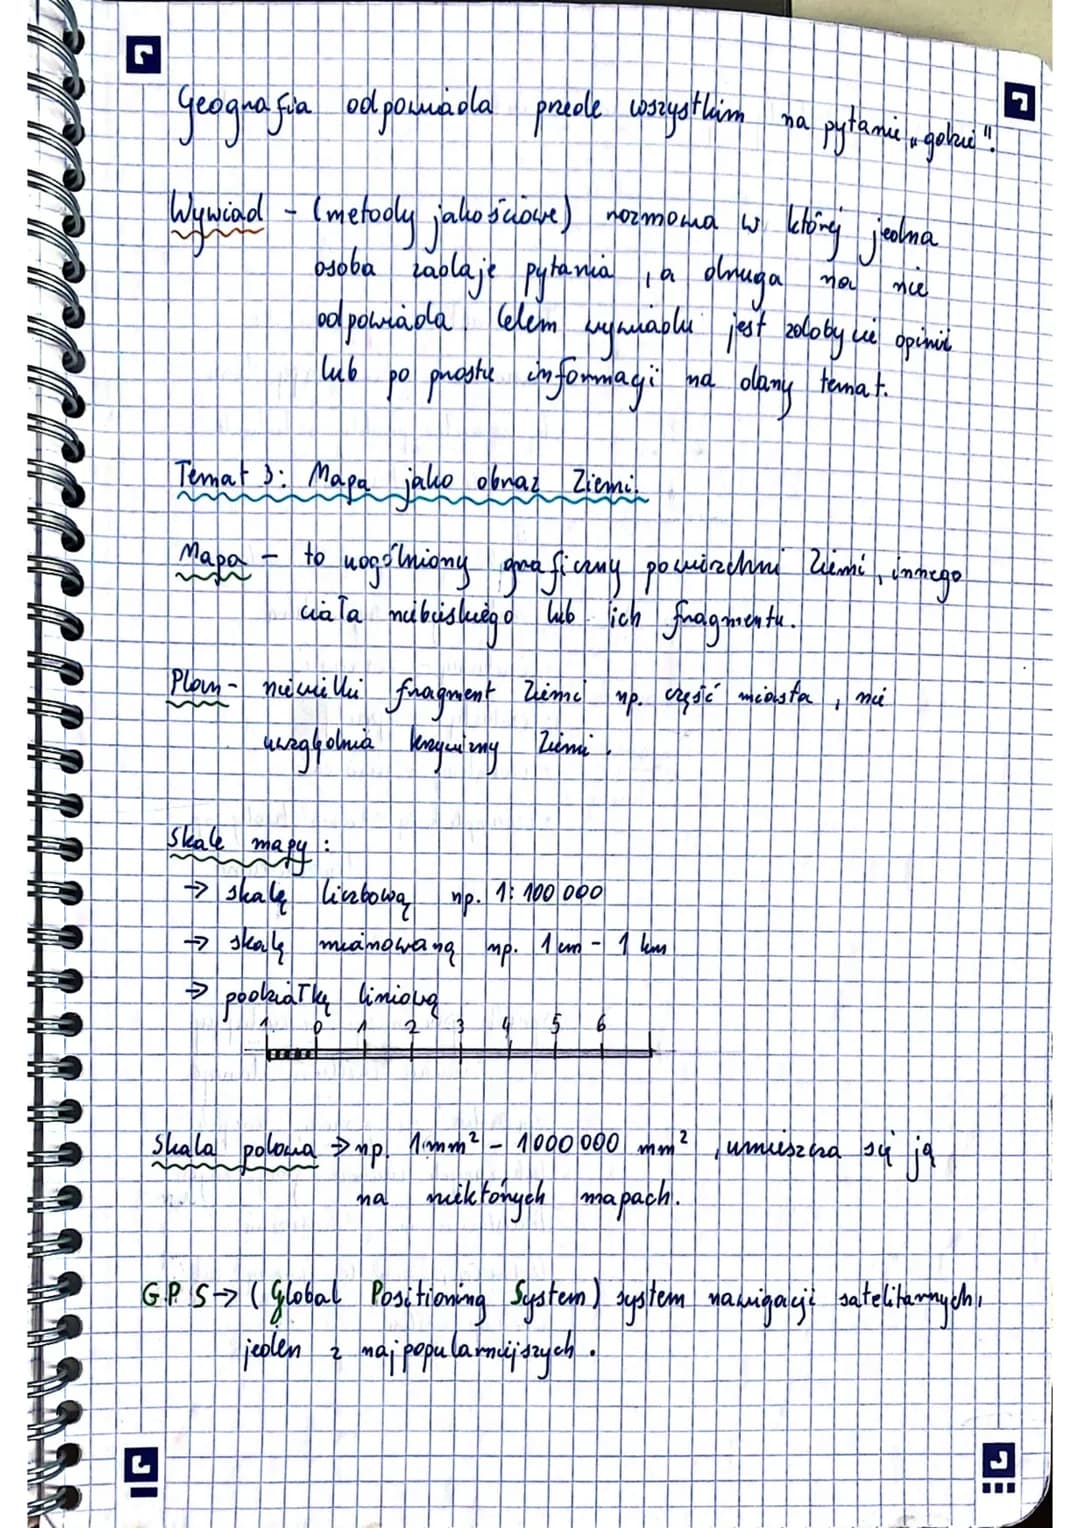 Geografia odpowiada przede wszystkim na pytanie „gdzie"!
Wywiad - (metody jakościowe) rozmowa w której jedna
osoba zadaje pytania, a druga na nie
odpowiada. Celem wywiadu jest zdobycie opinii
lub po prostu informacji na dany temat.
Temat 3: Mapa jako obraz Ziemi.
Mapa - to uogólniony graficzny powierzchni Ziemi, innego
ciała niebieskiego lub ich fragmentu.
Plan - niewielki fragment Ziemi np. część miasta, nie
uwzględnia krzywizny Ziemi.
Skale mapy:
→ skalę liczbową np. 1:100 000
→ skalę mianowaną np. 1 cm - 1 km
→ podziałkę liniową
1 0 1 2 3 4 5 6
Skala polowa → np. 1 mm² - 1000 000 mm², umieszcza się ją
na niektórych mapach.
G.P.S → (Global Positioning System) system nawigacji satelitarnych,
jeden z najpopularniejszych.